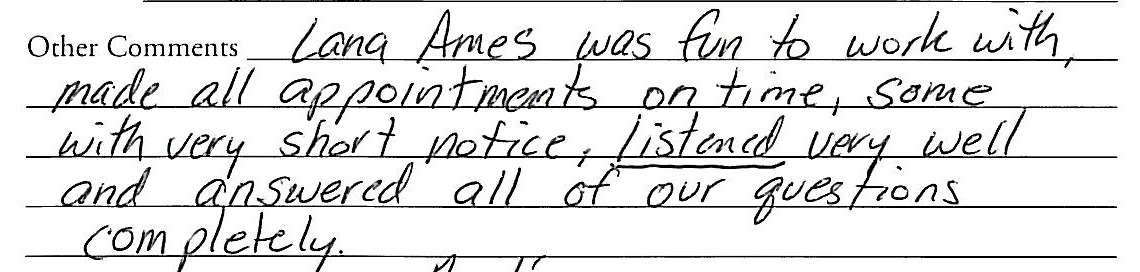 Other Comments Lana Ames was fun to work with,
made all appointments on time, some
with very short notice, listened very well
and answered all of our questions
completely.